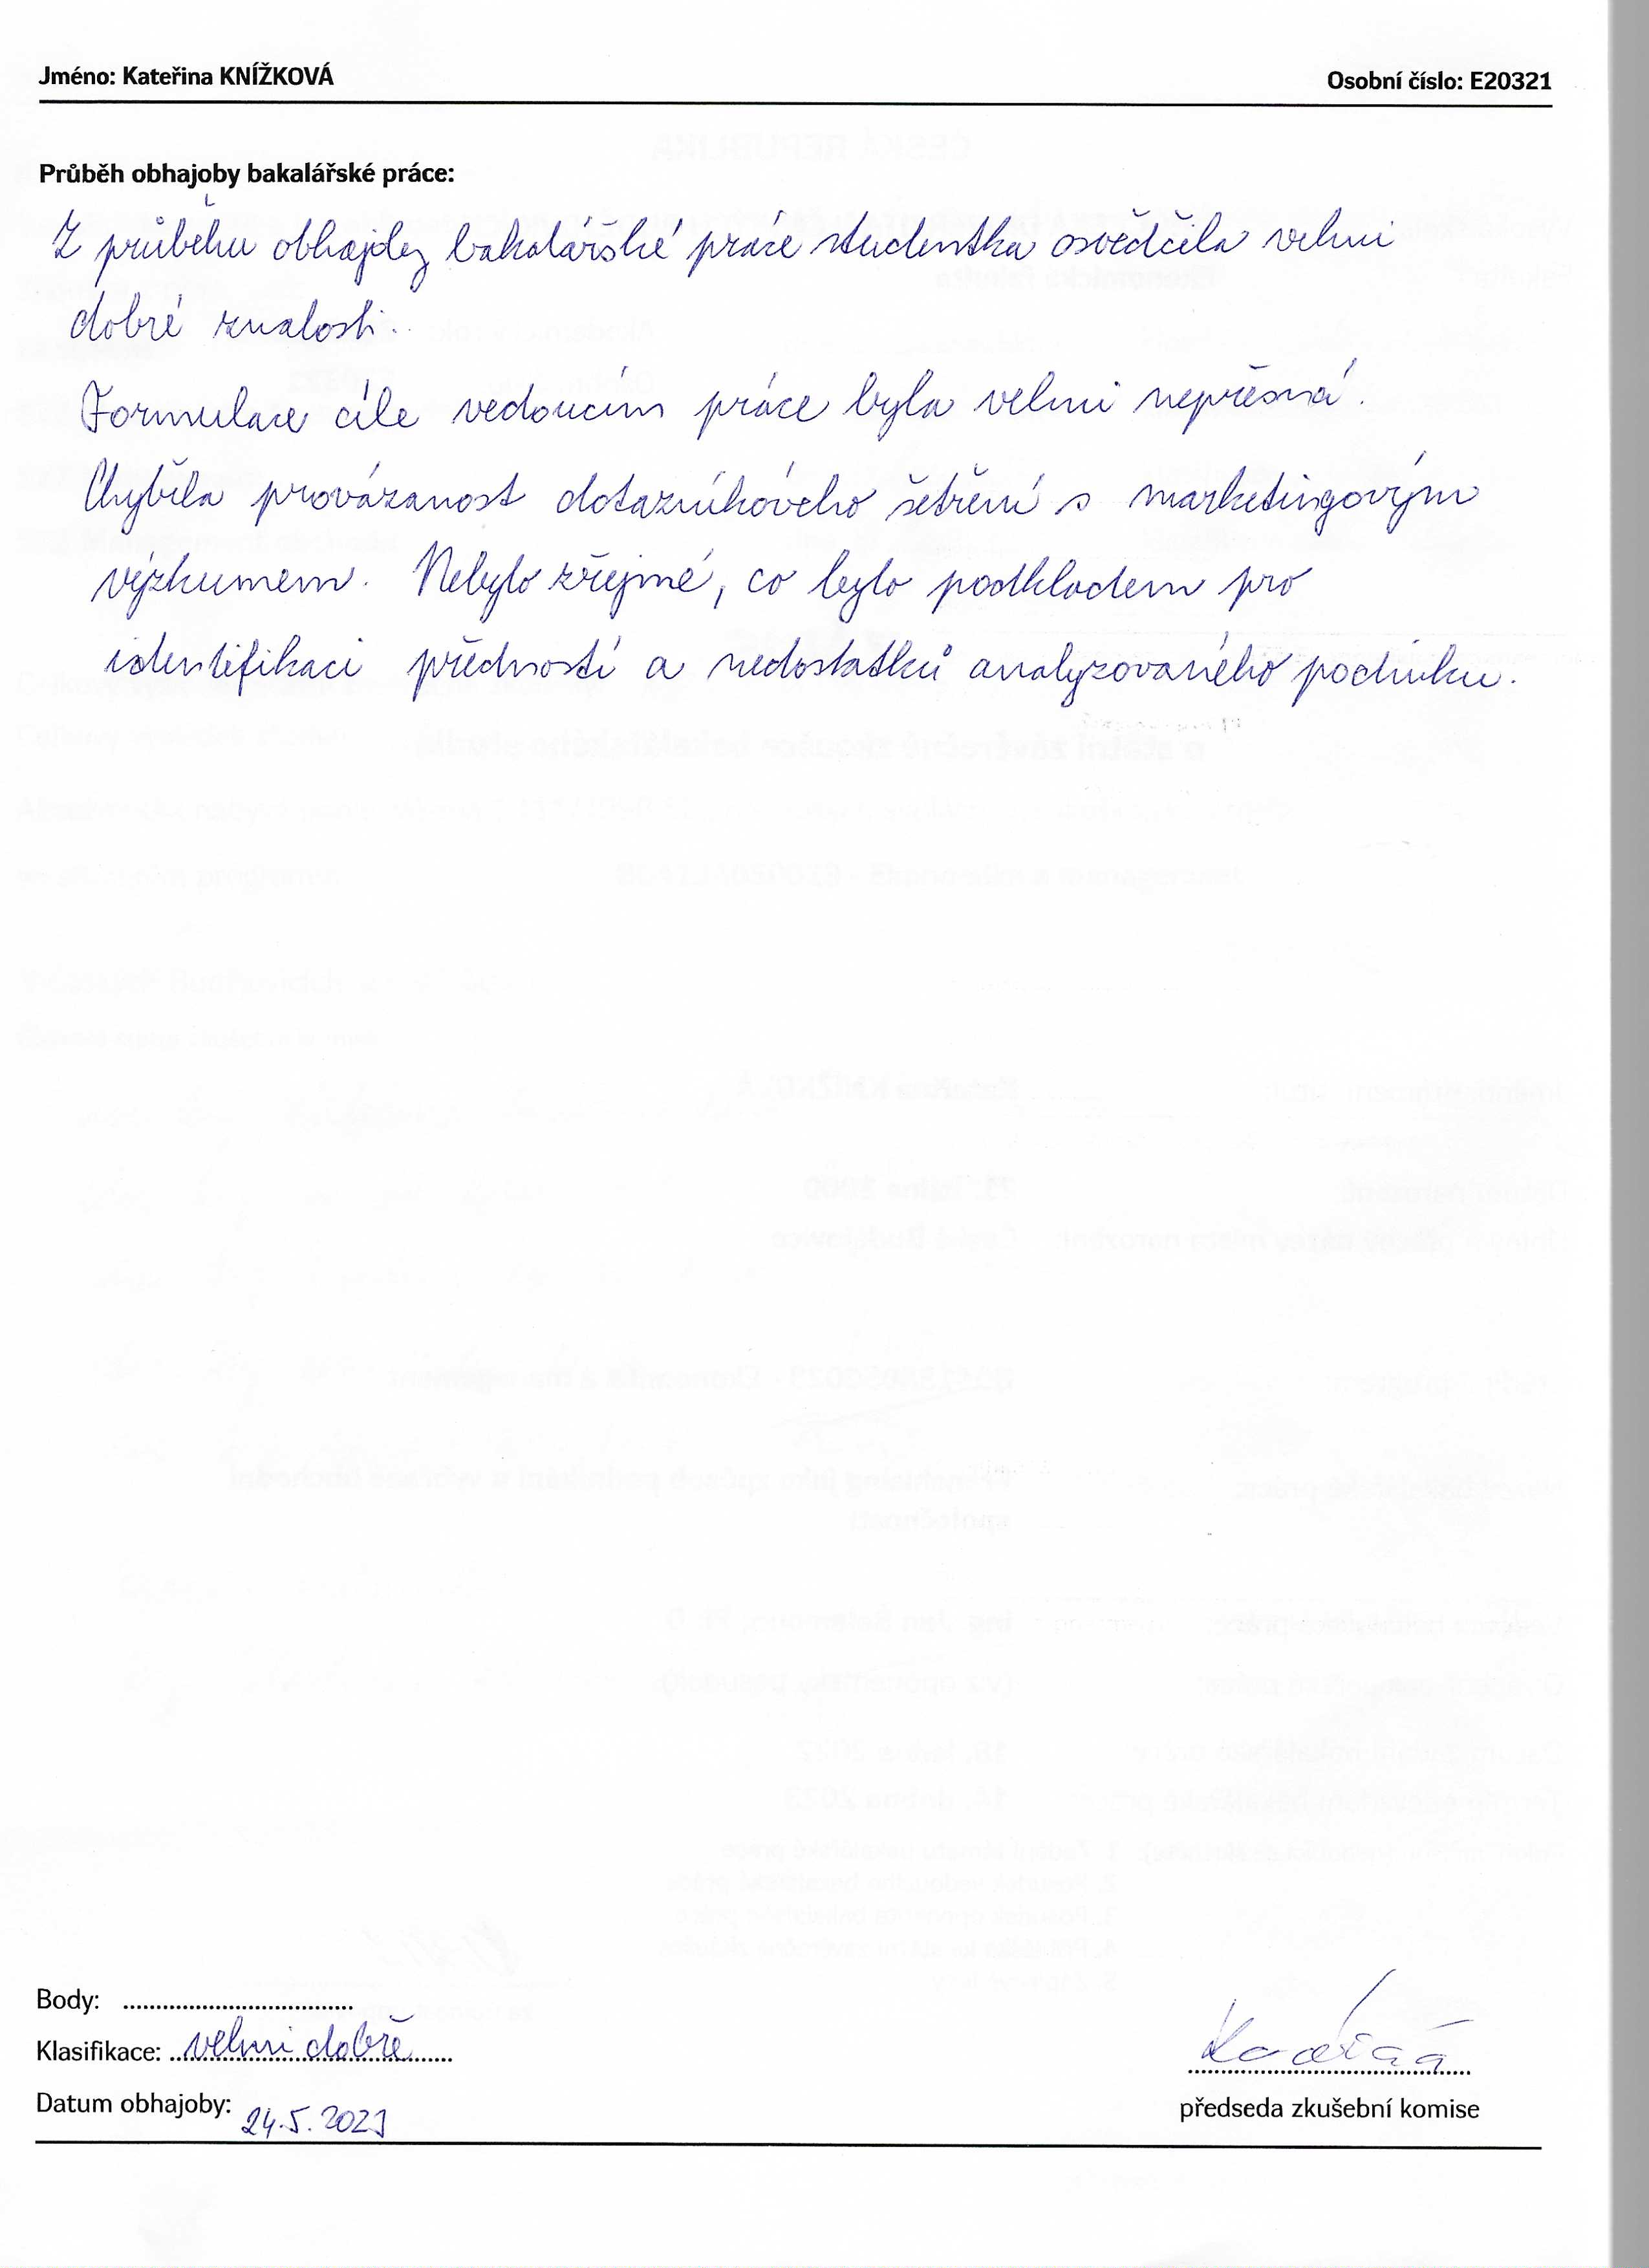 Jméno: Kateřina KNÍŽKOVÁ
Osobní číslo: E20321
Průběh obhajoby bakalářské práce:
Z průběhu obhajoby bakalářské práce studentka osvědčila velmi
dobré znalosti.
Formulace cíle vedoucím práce byla velmi nepřesná.
Chyběla provázanost dotazníkového šetření s marketingovým
výzkumem. Nebylo zřejmé, co bylo podkladem pro
identifikaci předností a nedostatků analyzovaného podniku.
Body:
Klasifikace: velmi dobře
Datum obhajoby: 24.5.2023
předseda zkušební komise